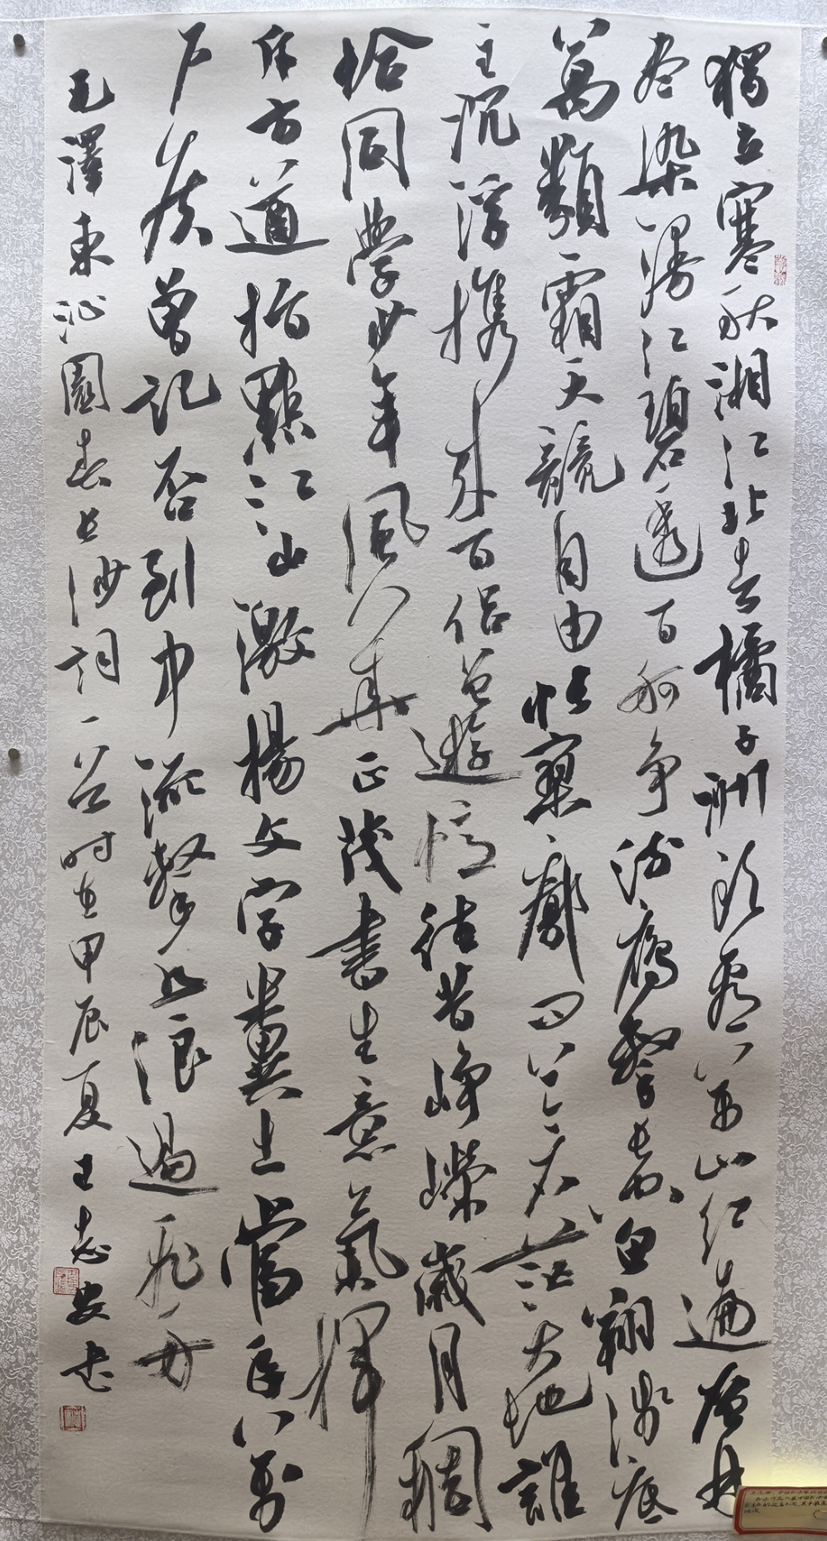 獨立寒秋湘江北去橘子洲头看万山红遍层林
尽染漫江碧透百舸争流鹰擊長空魚翔淺底
萬類霜天競自由悵寥廓問蒼茫大地誰
主沉浮携来百侣曾遊憶往昔峥嶸歲月稠
恰同學少年風華正茂書生意氣揮
斥方遒指點江山激揚文字糞土當年万
户侯曾記否到中流擊水浪遏飛舟
毛澤東沁園春長沙詞一首时在甲辰夏王志安书